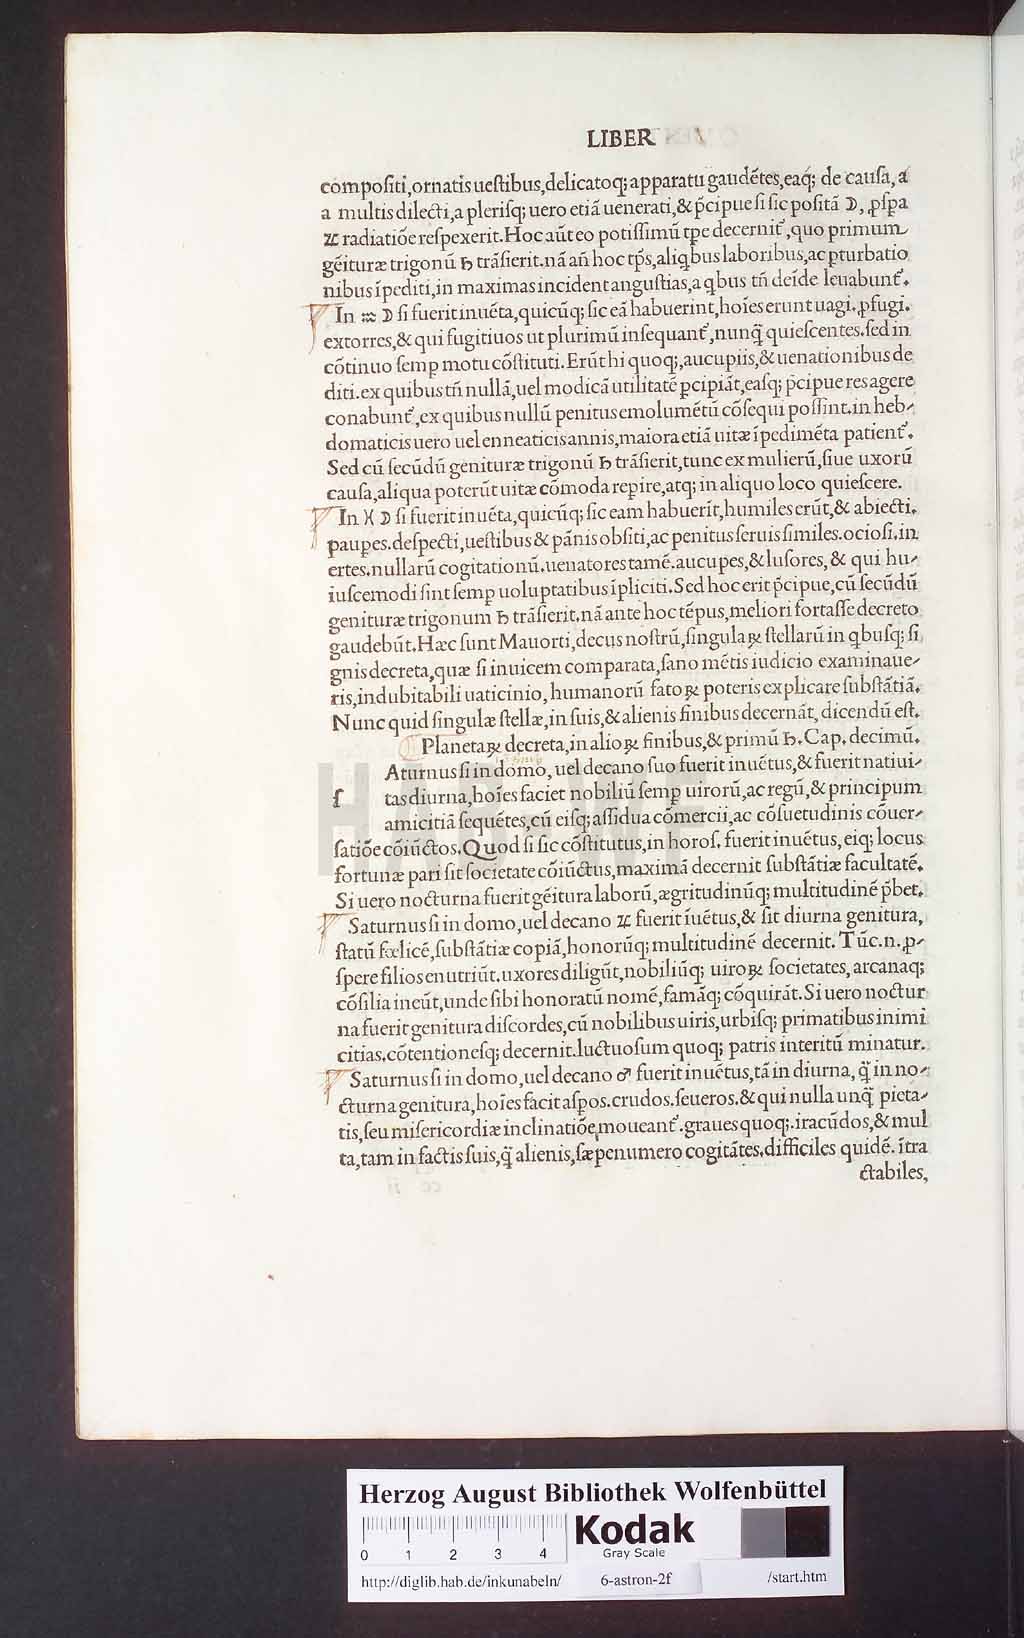 LIBER
compoſiti,ornatis ueſtibus,delicatoq; apparatu gaudētes,eaq; de cauſa, a
a multis dilecti,a pleriſq; uero etiā uenerati,& p̄cipue ſi ſic poſitā ☽, ꝓſꝑa
♃ radiatiōe reſpexerit. Hoc aūt eo potiſſimū tꝑe decernit᷑, quo primum
gēituræ trigonū ♄ trāſierit. nā an̄ hoc tp̄s, aliq̇bus laboribus, ac ꝑturbatio
nibus īpediti, in maximas incident anguſtias, a q̇bus tn̄ deīde leuabunt᷑.
In ♒ ☽ ſi fuerit inuēta, quicūq; ſic eā habuerint, hoīes erunt uagi. ꝓfugi.
extorres,& qui fugitiuos ut plurimū inſequant᷑, nunq̄ quieſcentes. ſed in
cōtinuo ſemꝑ motu cōſtituti. Erūt hi quoq;, aucupiis,& uenationibus de
diti. ex quibus tn̄ nullā, uel modicā utilitatē ꝑcipiāt, eaſq; p̄cipue res agere
conabunt᷑, ex quibus nullū penitus emolumētū cōſequi poſſint. in heb⸗
domaticis uero uel enneaticis annis, maiora etiā uitæ īpedimēta patient᷑.
Sed cū ſecūdū genituræ trigonū ♄ trāſierit, tunc ex mulierū, ſiue uxorū
cauſa, aliqua poterūt uitæ cōmoda reꝑire, atq; in aliquo loco quieſcere.
In ♓ ☽ ſi fuerit inuēta, quicūq; ſic eam habuerīt, humiles erūt,& abiecti.
pauꝑes. deſpecti, ueſtibus & pānis obſiti, ac penitus ſeruis ſimiles. ocioſi. in
ertes. nullarū cogitationū. uenatores tamē. aucupes,& luſores, & qui hu⸗
iuſcemodi ſint ſemꝑ uoluptatibus īpliciti. Sed hoc erit p̄cipue, cū ſecūdū
genituræ trigonum ♄ trāſierit. nā ante hoc tēpus, meliori fortaſſe decreto
gaudebūt. Hæc ſunt Mauorti, decus noſtrū, ſingulaꝝ ſtellarū in q̇buſq; ſi
gnis decreta, quæ ſi inuicem comparata, ſano mētis iudicio examinaue⸗
ris, indubitabili uaticinio, humanorū fatoꝝ poteris explicare ſubſtātiā.
Nunc quid ſingulæ ſtellæ, in ſuis,& alienis finibus decernāt, dicendū eſt.
Planetaꝝ decreta, in alioꝝ finibus,& primū ♄. Cap. decimū.
Aturnus ſi in domo, uel decano ſuo fuerit inuētus,& fuerit natiui⸗
ſ tas diurna, hoīes faciet nobiliū ſemꝑ uirorū, ac regū,& principum
amicitiā ſequētes, cū eiſq; aſſidua cōmercii, ac cōſuetudinis cōuer⸗
ſatiōe cōiūctos. Quod ſi ſic cōſtitutus, in horoſ. fuerit inuētus, eiq; locus
fortunæ pari ſit ſocietate cōiūctus, maximā decernit ſubſtātiæ facultatē.
Si uero nocturna fuerit gēitura laborū, ægritudinūq; multitudinē p̄bet.
Saturnus ſi in domo, uel decano ♃ fuerit īuētus,& ſit diurna genitura,
ſtatū fœlicē, ſubſtātiæ copiā, honorūq; multitudinē decernit. Tūc.n. ꝓ⸗
ſpere filios enutriūt. uxores diligūt, nobiliūq; uiroꝝ ſocietates, arcanaq;
cōſilia ineūt, unde ſibi honoratū nomē, famāq; cōquirāt. Si uero noctur
na fuerit genitura diſcordes, cū nobilibus uiris, urbiſq; primatibus inimi
citias. cōtentioneſq; decernit. luctuoſum quoq; patris interitū minatur.
Saturnus ſi in domo, uel decano ♂ fuerit inuētus, tā in diurna, q̄ in no⸗
cturna genitura, hoīes facit aſꝑos. crudos. ſeueros.& qui nulla unq̄ pieta⸗
tis, ſeu miſericordiæ inclinatiōe moueant᷑. graues quoq;. iracūdos,& mul
ta, tam in factis ſuis, q̄ alienis, ſæpenumero cogitātes. difficiles quidē. ītra
ctabiles,
HAB WF
Herzog August Bibliothek Wolfenbüttel
0 1 2 3 4
Kodak
Gray Scale
http://diglib.hab.de/inkunabeln/ 6-astron-2f /start.htm